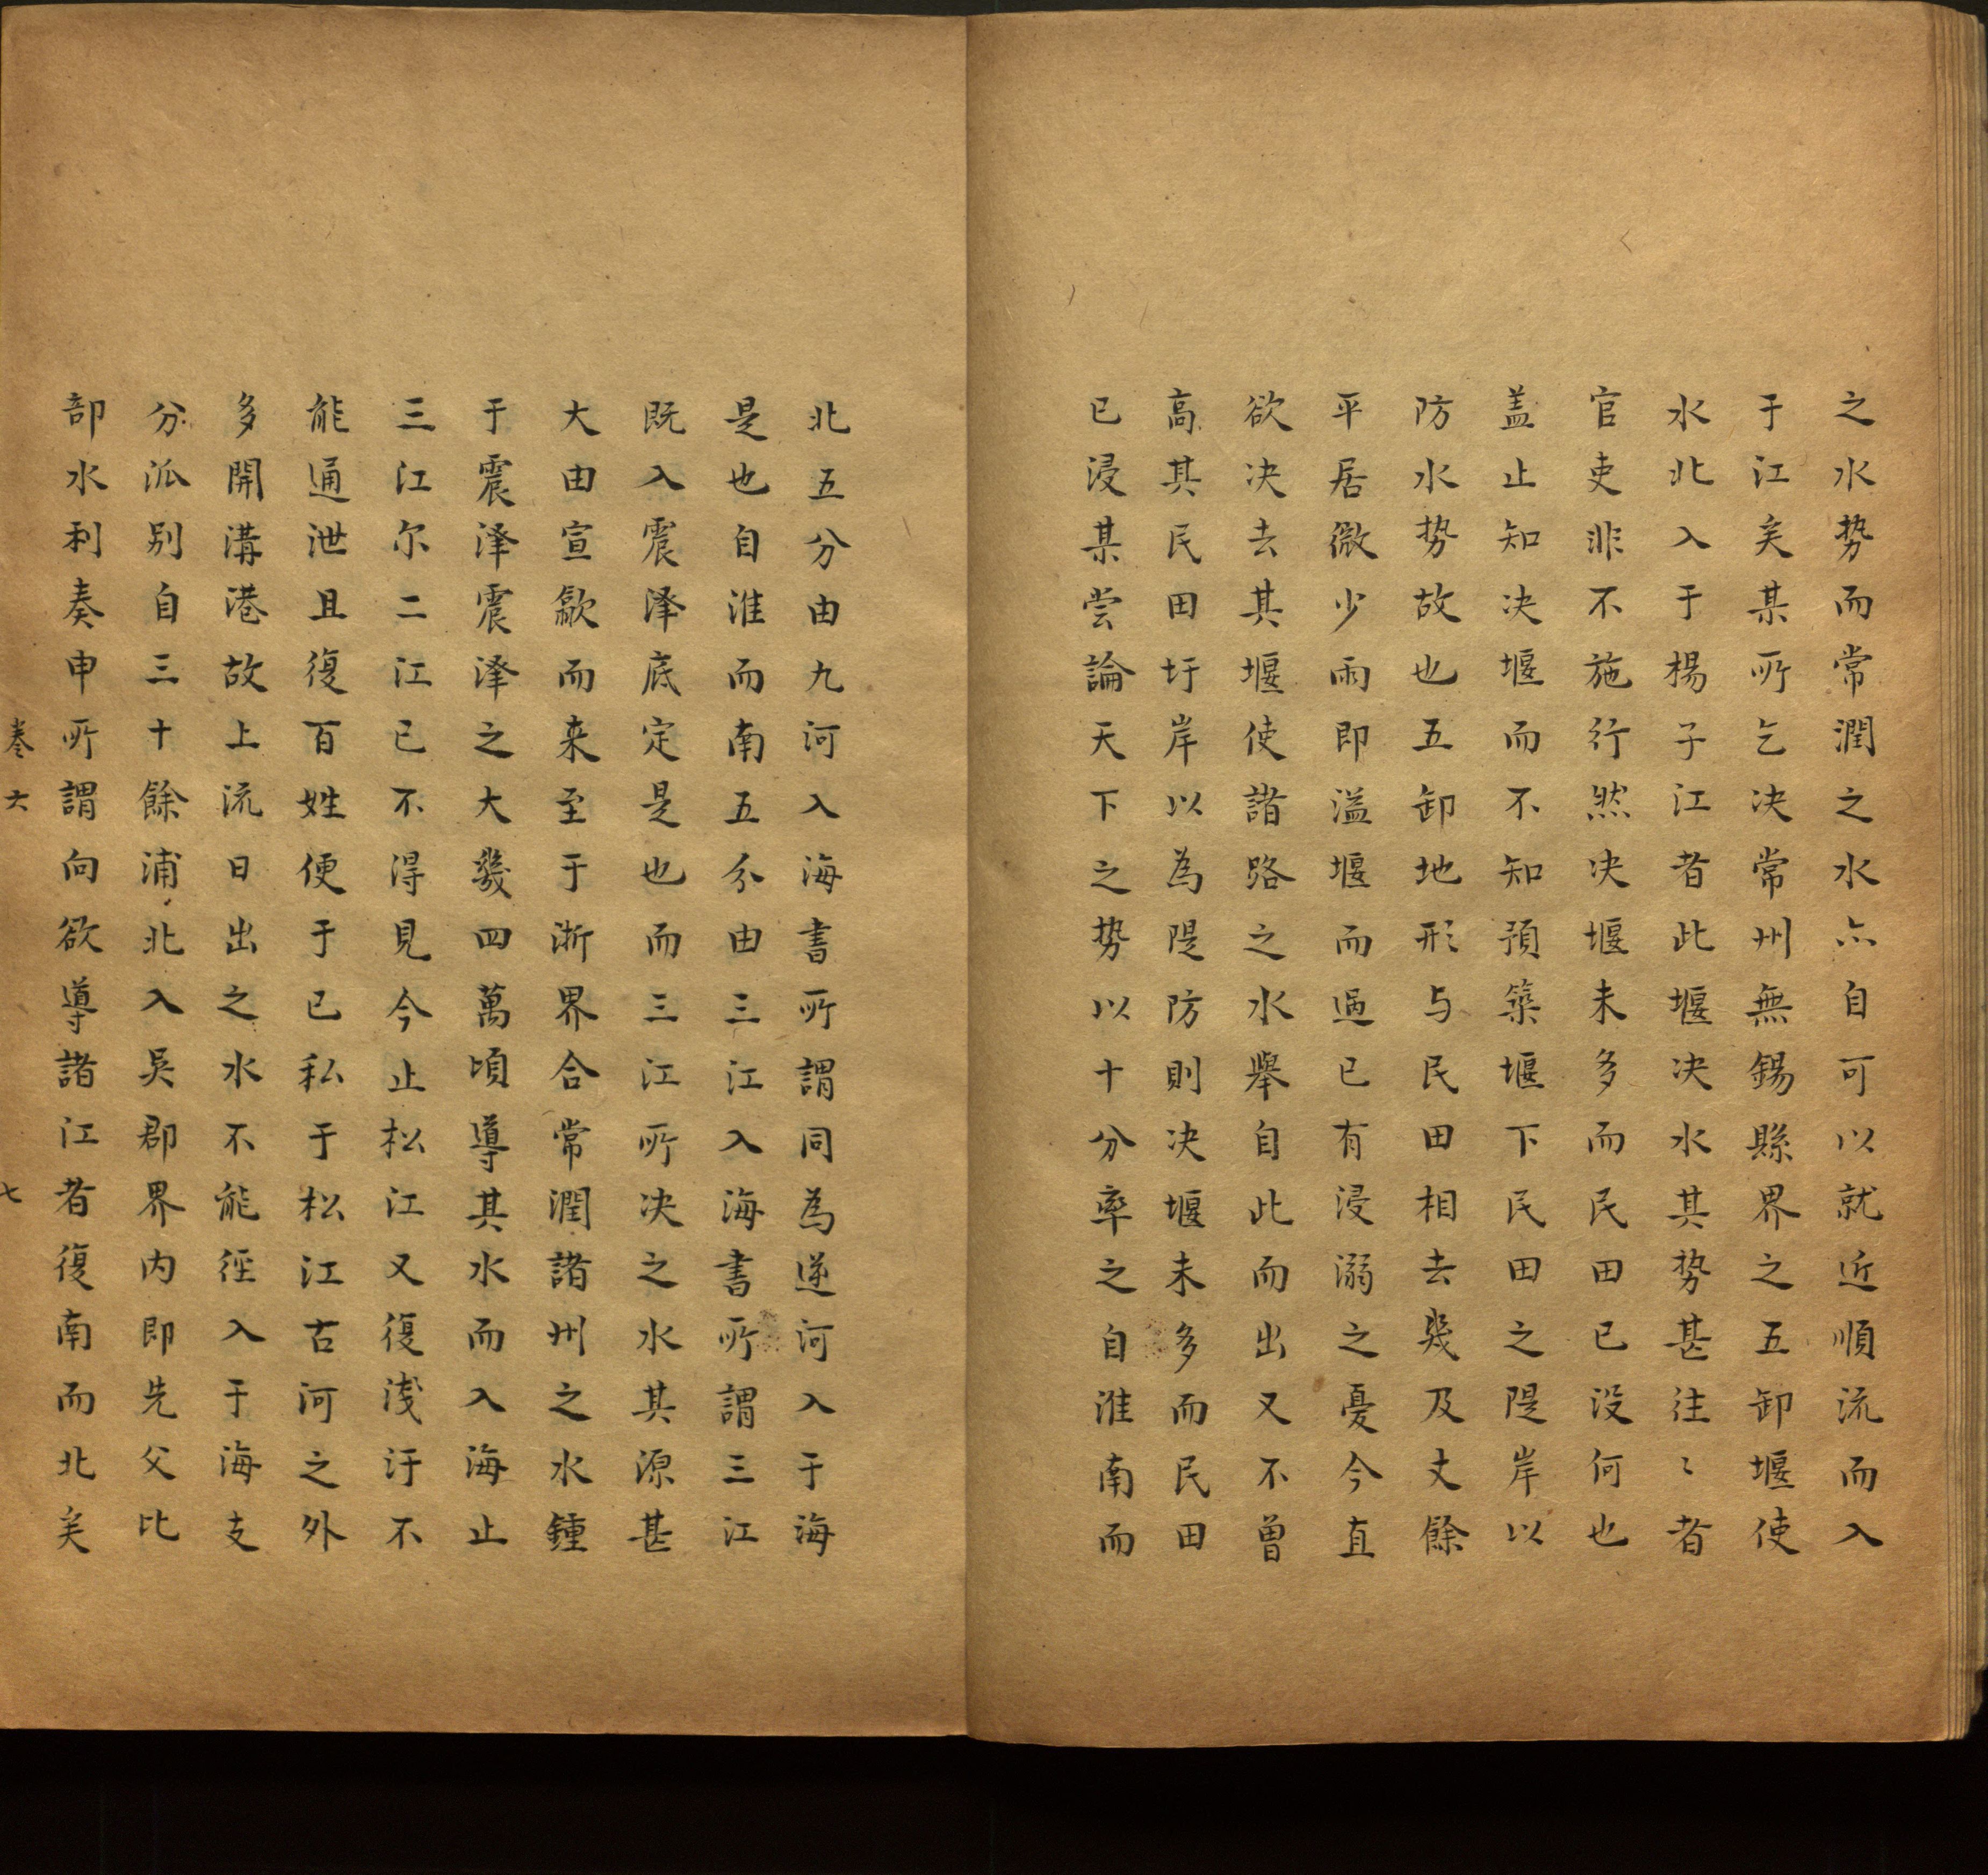 之水势而常潤之水亦自可以就近順流而入
于江矣某所乞决常州無錫縣界之五卸堰使
水北入于楊子江者此堰决水其势甚往〻者
官吏非不施行然决堰未多而民田已没何也
盖止知决堰而不知預築堰下民田之隄岸以
防水势故也五卸地形与民田相去幾及丈餘
平居微少雨即溢堰而過已有浸溺之憂今直
欲决去其堰使諸路之水舉自此而出又不曽
高其民田圩岸以為隄防則决堰未多而民田
已浸某尝論天下之势以十分率之自淮南而
北五分由九河入海書所謂同為逆河入于海
是也自淮而南五分由三江入海書所謂三江
既入震泽底定是也而三江所决之水其源甚
大由宣歙而来至于浙界合常潤諸州之水鍾
于震泽震泽之大幾四萬頃導其水而入海止
三江尔二江已不得見今止松江又復浅汙不
能通泄且復百姓便于已私于松江古河之外
多開溝港故上流日出之水不能徑入于海支
分派别自三十餘浦北入吴郡界内即先父比
部水利奏申所謂向欲導諸江者復南而北矣
卷六 七